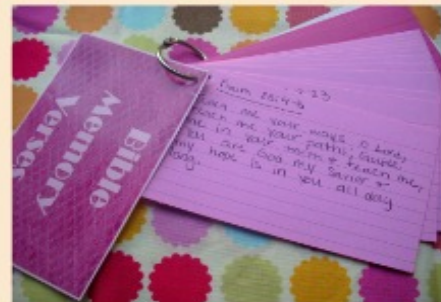 Bible
Memory
Verses
Psalm 25:4-5
me your ways, O Lord,
teach me your paths, Guide
me in your truth & teach me,
you are God my Savior &
my hope is in you all day
long.